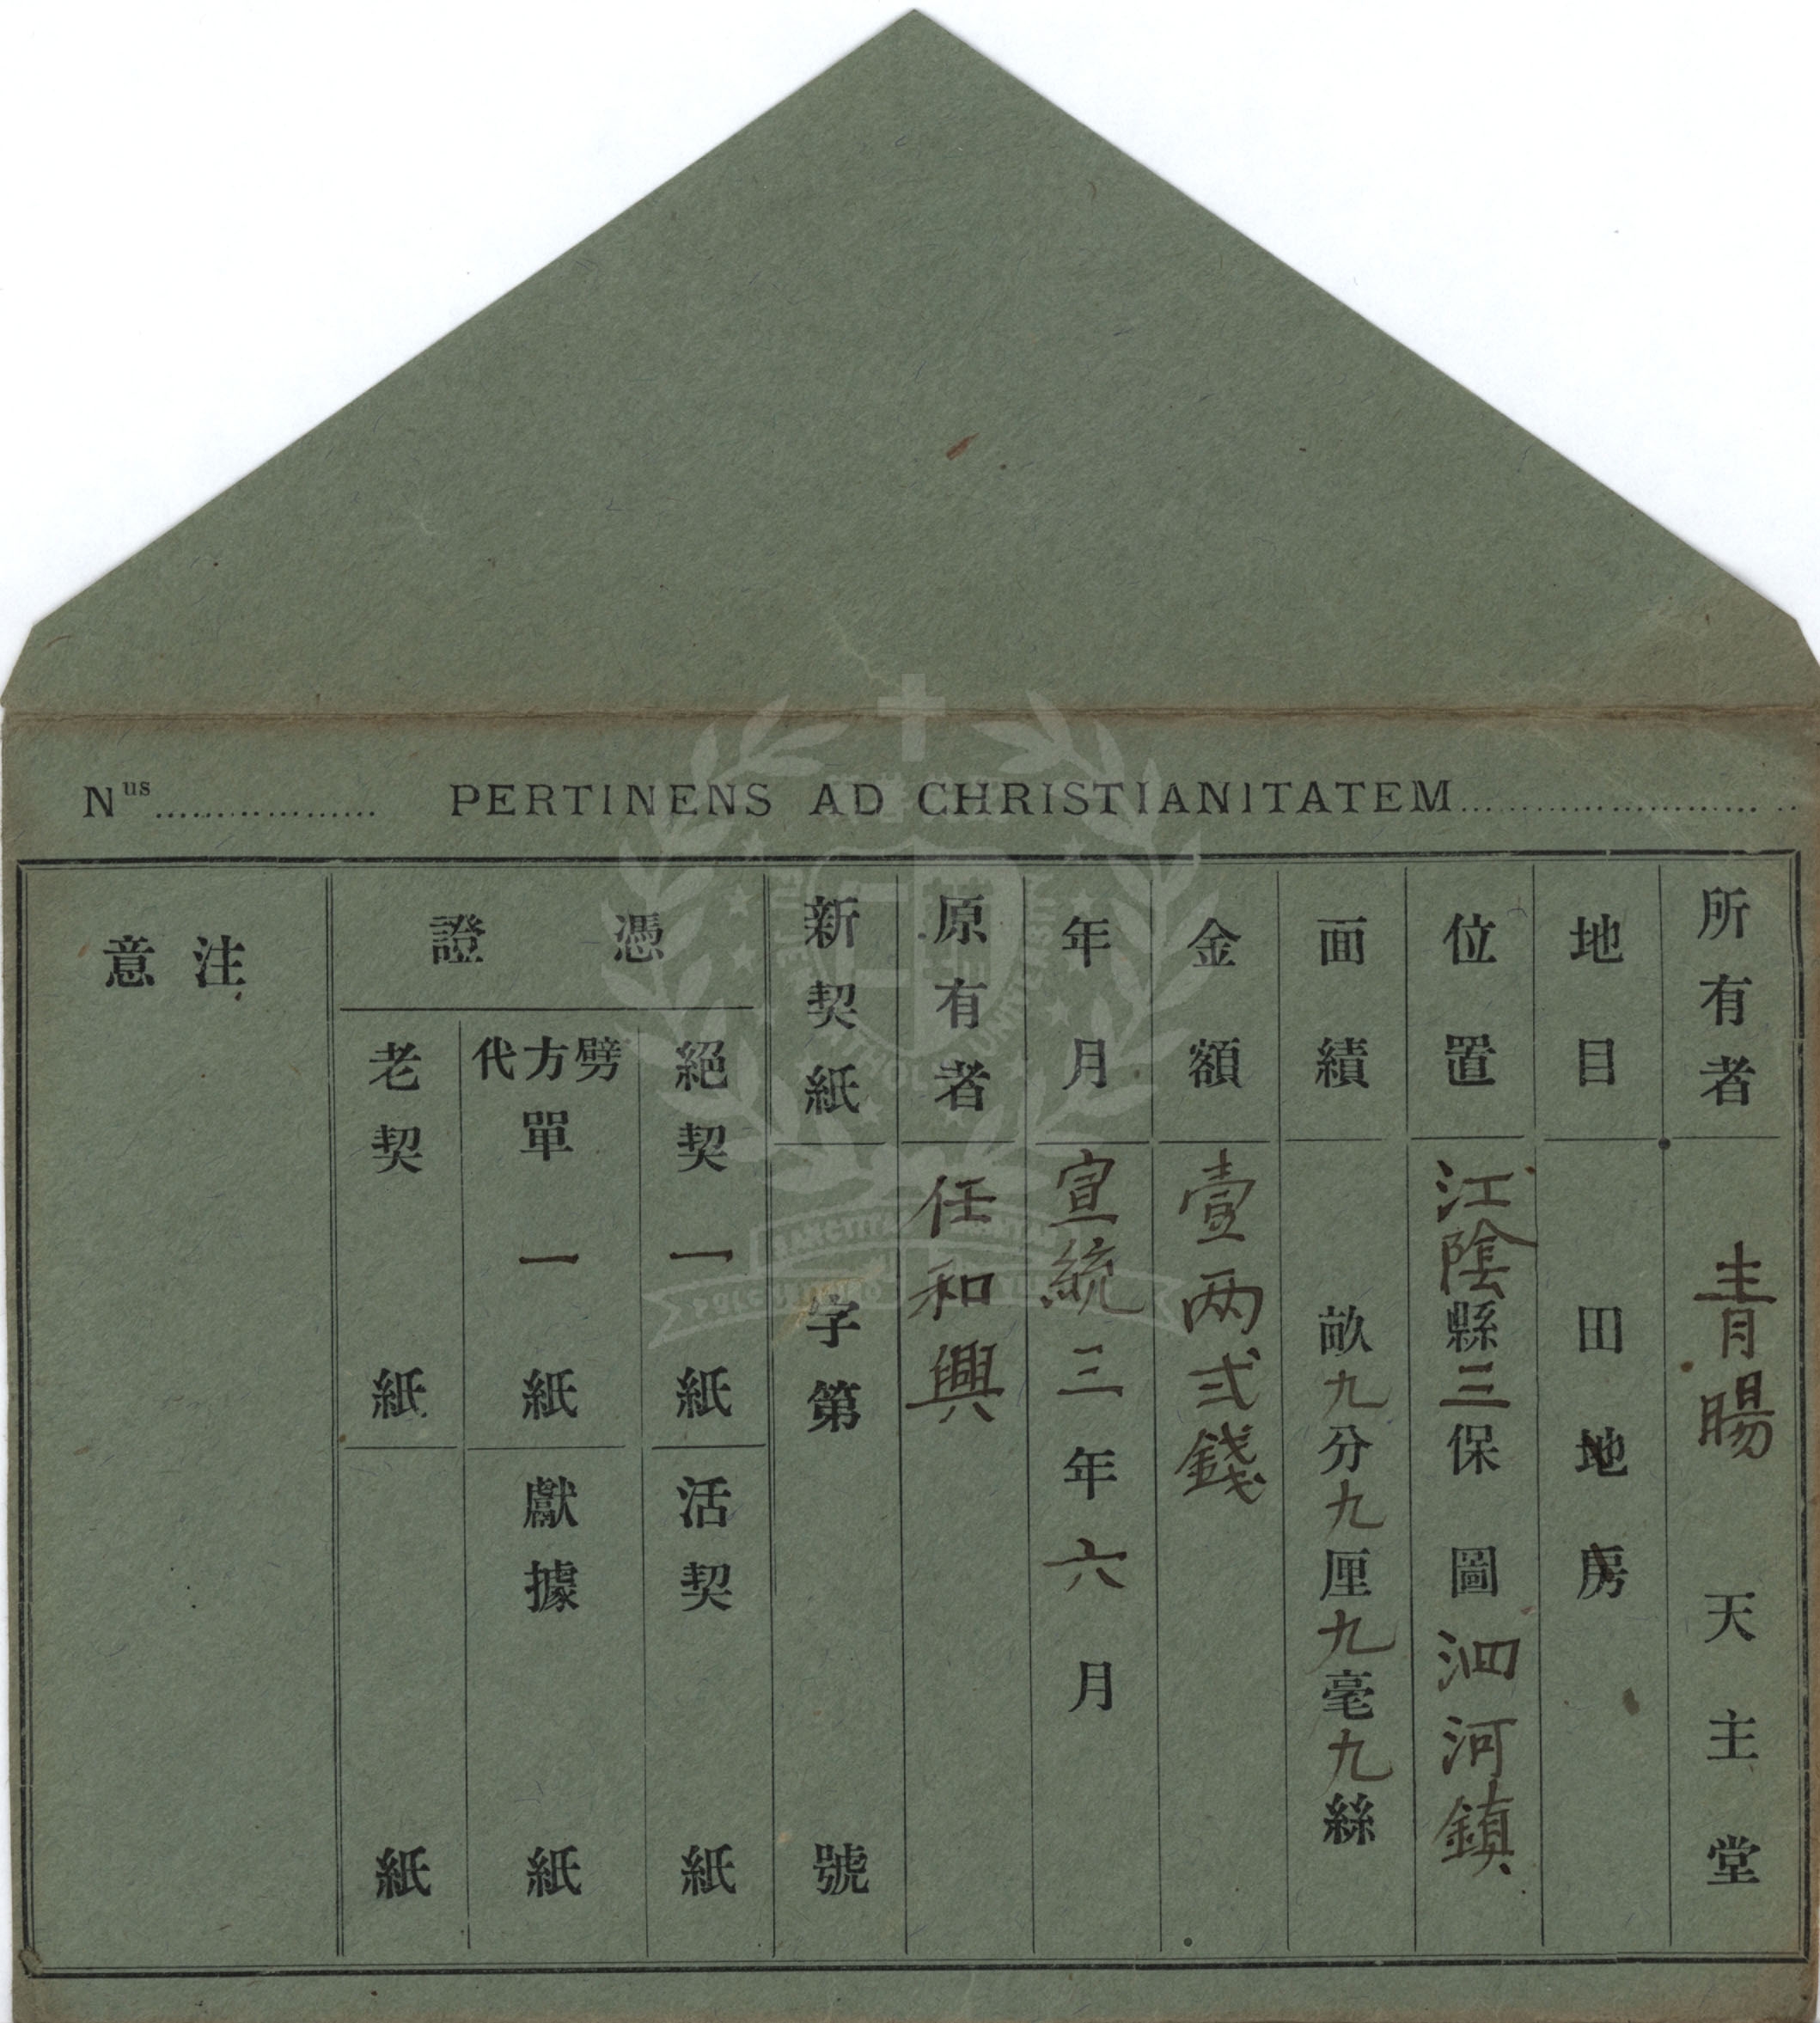 Nus.................. PERTINENS AD CHRISTIANITATEM..........................
所有者 青暘 天主堂
地目 田地房
位置 江陰縣三保 圖泗河鎮
面績 畝九分九厘九毫九絲
金額 壹两弍錢
年月 宣統三年六月
原有者 任和興
新契紙 字第 號
憑證
絕契一紙
活契 紙
劈方代單一紙
獻據 紙
老契 紙
紙
注意